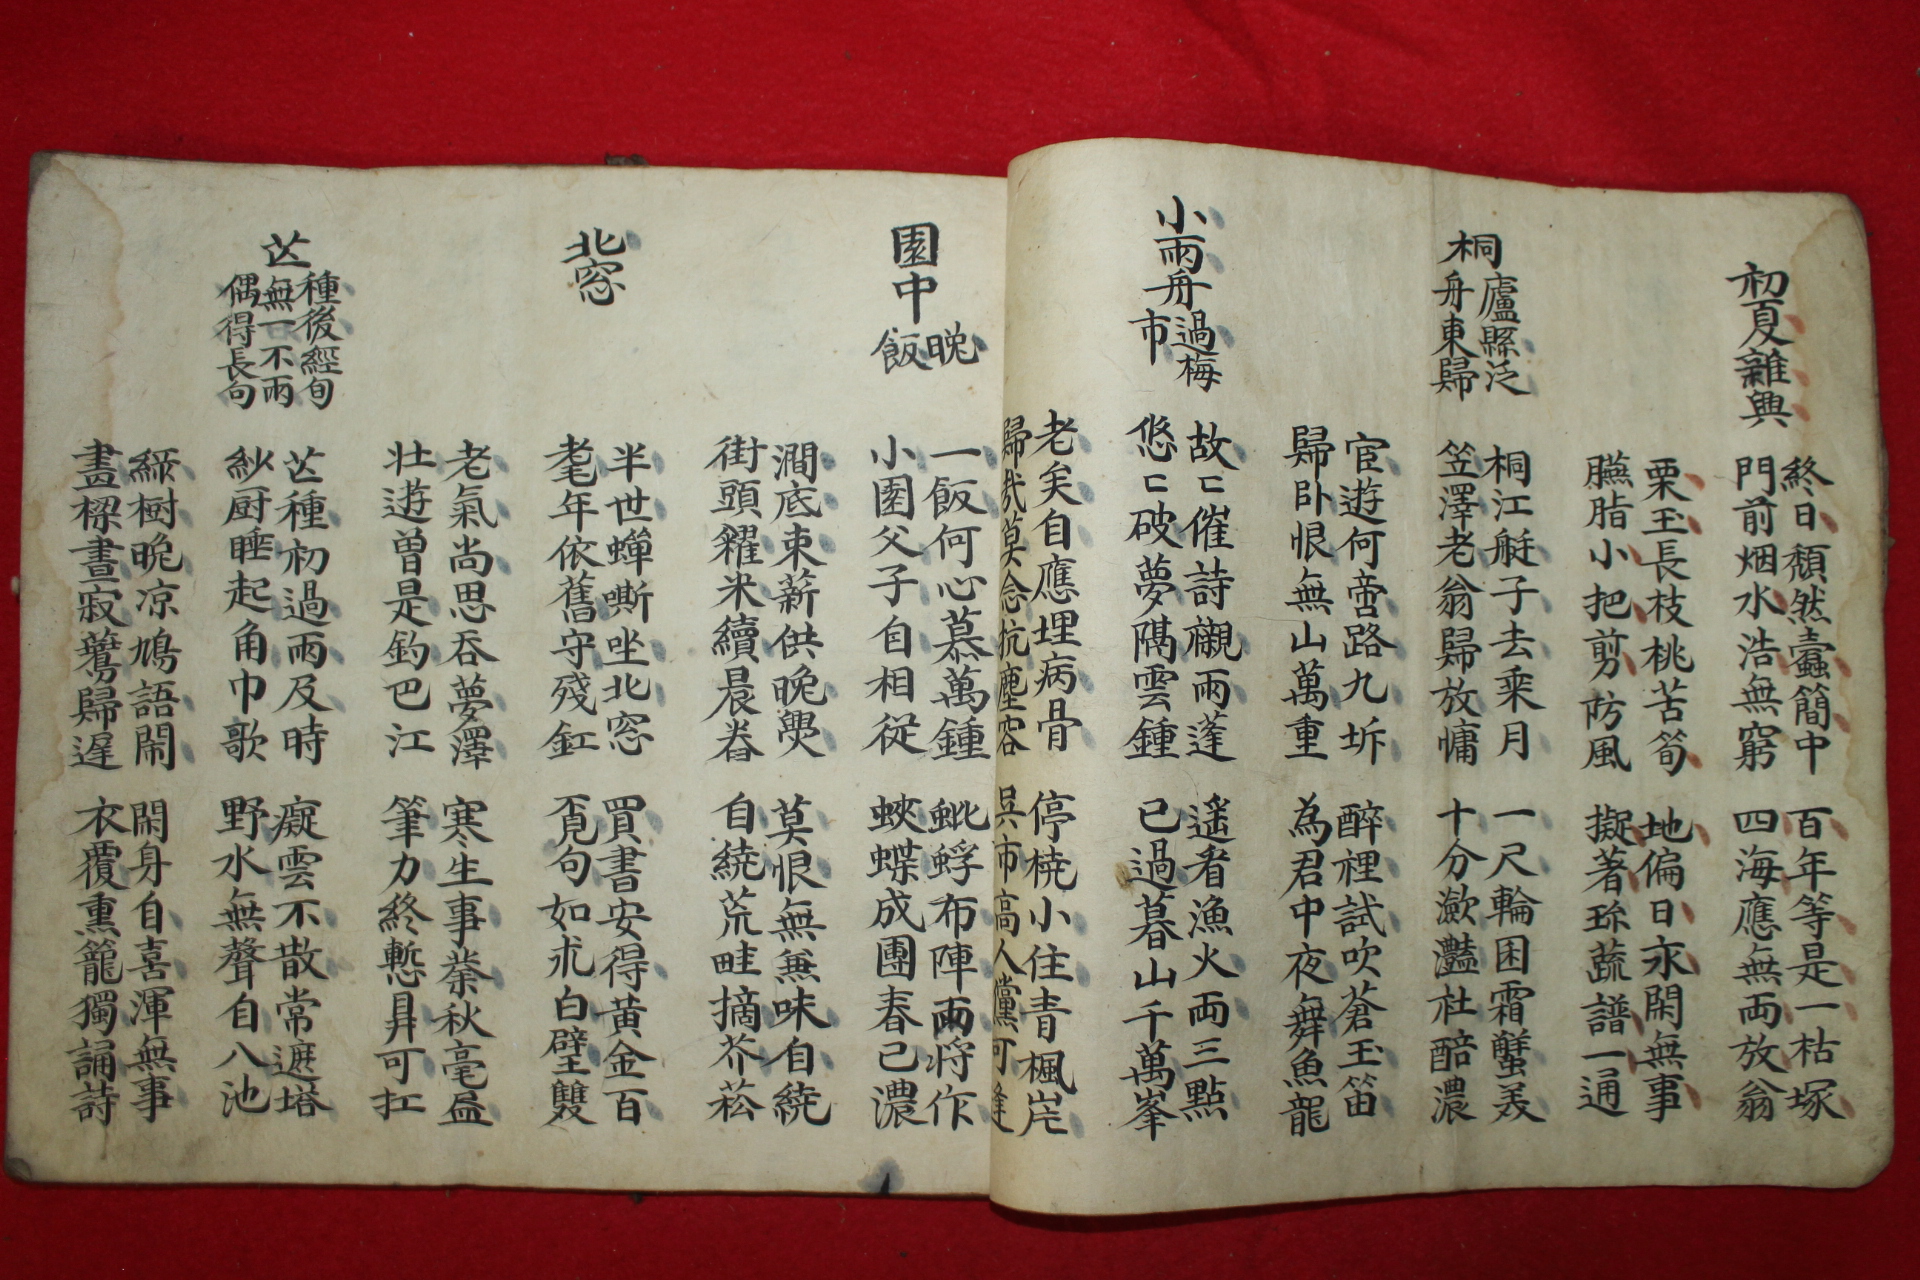 初夏雜興
終日頹然蠹簡中 百年等是一枯塚
門前烟水浩無窮 四海應無兩放翁
栗玉長枝桃苦筍 地偏日永閑無事
臙脂小把剪防風 擬著珎蔬譜一通
桐廬縣泛舟東歸
桐江艇子去乘月 一尺輪囷霜蟹美
笠澤老翁歸放慵 十分瀲灩社醅濃
宦遊何啻路九坼 醉裡試吹蒼玉笛
歸卧恨無山萬重 為君中夜舞魚龍
小雨舟過梅市
故匕催詩襯雨蓬 遥看漁火兩三點
悠匕破夢隔雲鍾 已過暮山千萬峯
老矣自應埋病骨 停橈小住青楓岸
歸哉莫念抗塵容 吳市高人儻可逢
園中晚飯
一飯何心慕萬鍾 蚍蜉布陣雨將作
小園父子自相從 蛺蝶成團春已濃
澗底束薪供晚爨 莫恨無無味自繞
街頭糴米續晨舂 自繞荒畦摘芥菘
北窓
半世蟬嘶坐北窓 買書安得黃金百
耄年依舊守殘釭 覔句如求白璧雙
老氣尚思吞夢澤 寒生事業秋毫盈
壯遊曾是釣巴江 筆力終慙鼎可扛
芒種後經旬無一不雨偶得長句
芒種初過雨及時 癡雲不散常遮塔
紗厨睡起角巾歌 野水無聲自入池
綠樹晚凉鳩語鬧 閑身自喜渾無事
畫樑晝寂鷰歸遲 衣覆熏籠獨誦詩